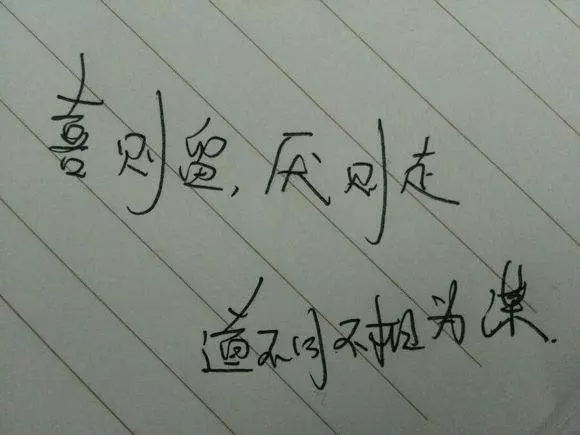 喜则留,厌则走
道不同不相为谋.